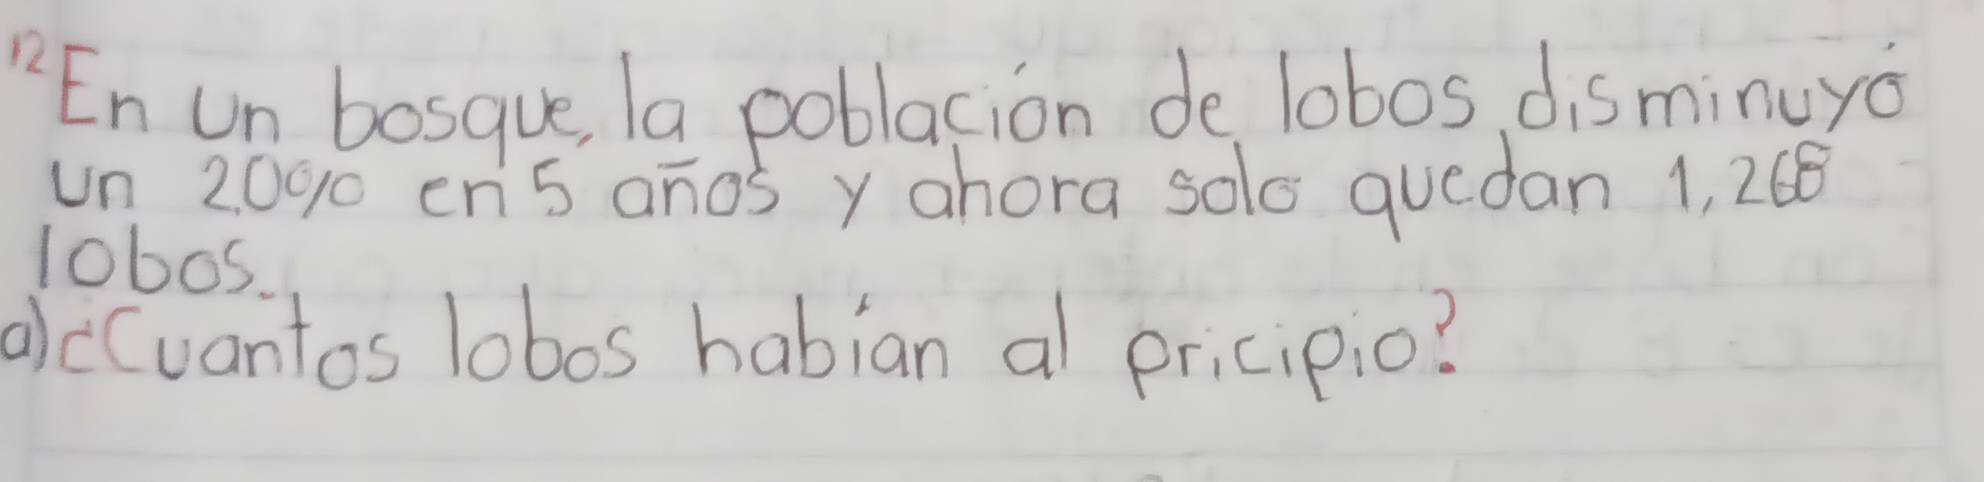 12 En un bosque, la población de lobos disminuyó
un 20% en 5 años y ahora solo quedan 1,268
lobos.
a) ¿Cuantos lobos habían al pricipio?